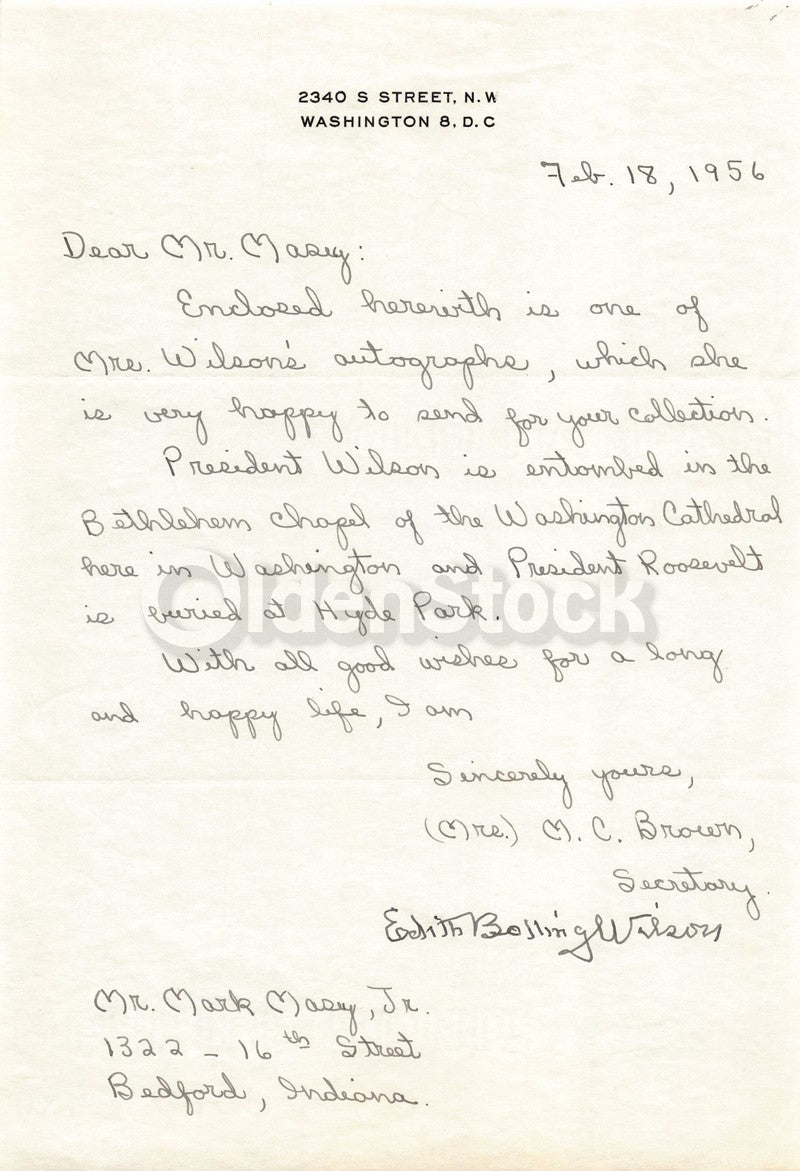 2340 S STREET, N.W
WASHINGTON 8, D.C
Feb. 18, 1956
Dear Mr. Masey:
Enclosed herewith is one of
Mrs. Wilson's autographs, which she
is very happy to send for your collection.
President Wilson is entombed in the
Bethlehem Chapel of the Washington Cathedral
here in Washington and President Roosevelt
is buried at Hyde Park.
OldenStock
With all good wishes for a long
and happy life, I am
Sincerely yours,
(Mrs.) M. C. Brown,
Secretary.
Edith Bolling Wilson
Mr. Mark Masey, Jr.
1322 - 16th Street
Bedford, Indiana.